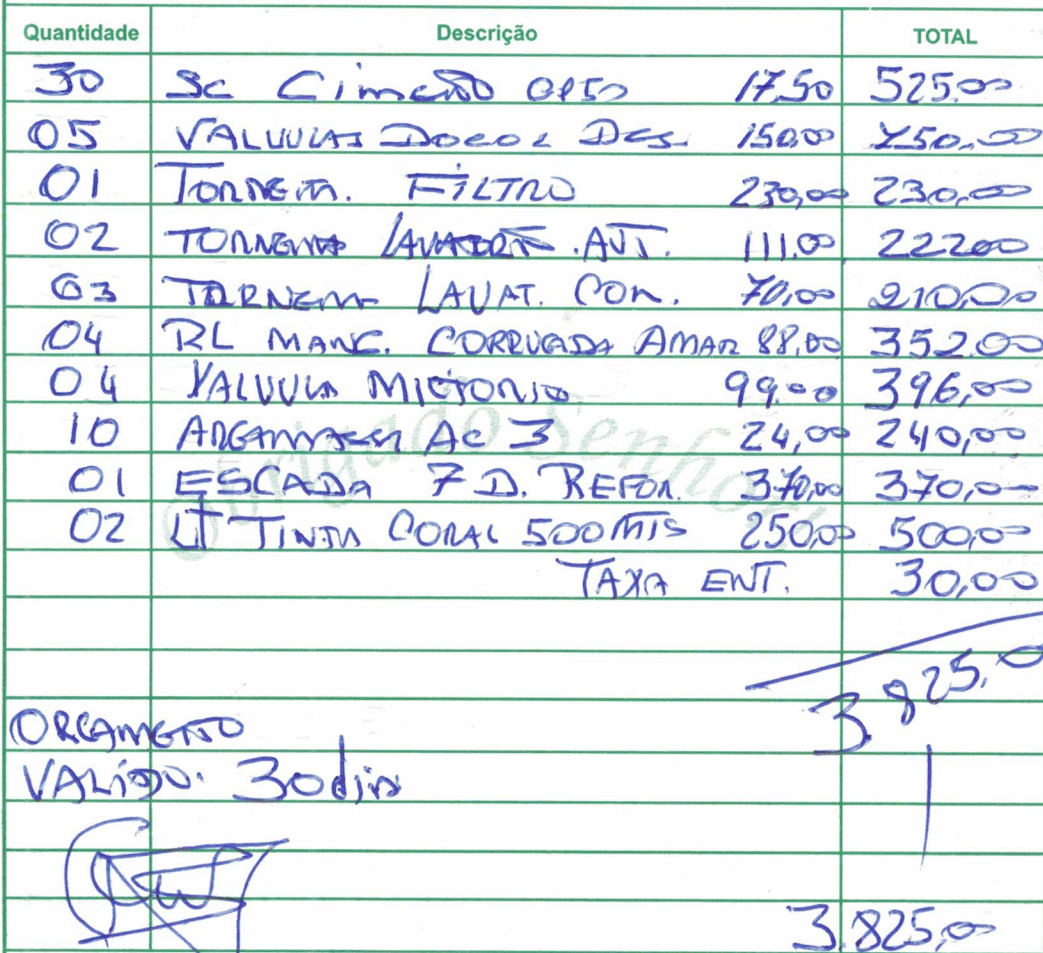 Quantidade Descrição TOTAL
30 Sc Cimento CP50 17,50 525,00
05 VALVULAS Docol Des. 150,00 750,00
01 TORNEIR. FiLTRO 230,00 230,00
02 TORNEIRA LAVATORI. AUT. 111,00 222,00
03 TORNEIRA LAVAT. COM. 70,00 210,00
04 RL MANG. CORRUGADA AMAR 88,00 352,00
04 VALVULA MICTORIO 99,00 396,00
10 ARGAMASSA AC 3 24,00 240,00
01 ESCADA 7 D. REFOR. 370,00 370,00
02 LT TINTA CORAL 500 MTS 250,00 500,00
Obrigado Senhor!
TAXA ENT. 30,00
3.825,00
ORÇAMENTO
VALIDO: 30 dias
3.825,00